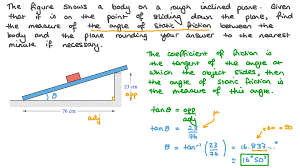 The figure shows a body on a rough inclined plane. Given
that it is on the point of sliding down the plane, find
the measure of the angle of static friction between the
body and the plane rounding your answer to the nearest
minute if necessary.
The coefficient of friction is
the tangent of the angle at
which the object slides, then
the angle of static friction is
the measure of this angle.
23 cm
opp
76 cm
adj
tanθ = opp/adj
tanθ = 23/76
μ
θ = tan⁻¹(23/76) = 16.837...°
≃ 16°50'